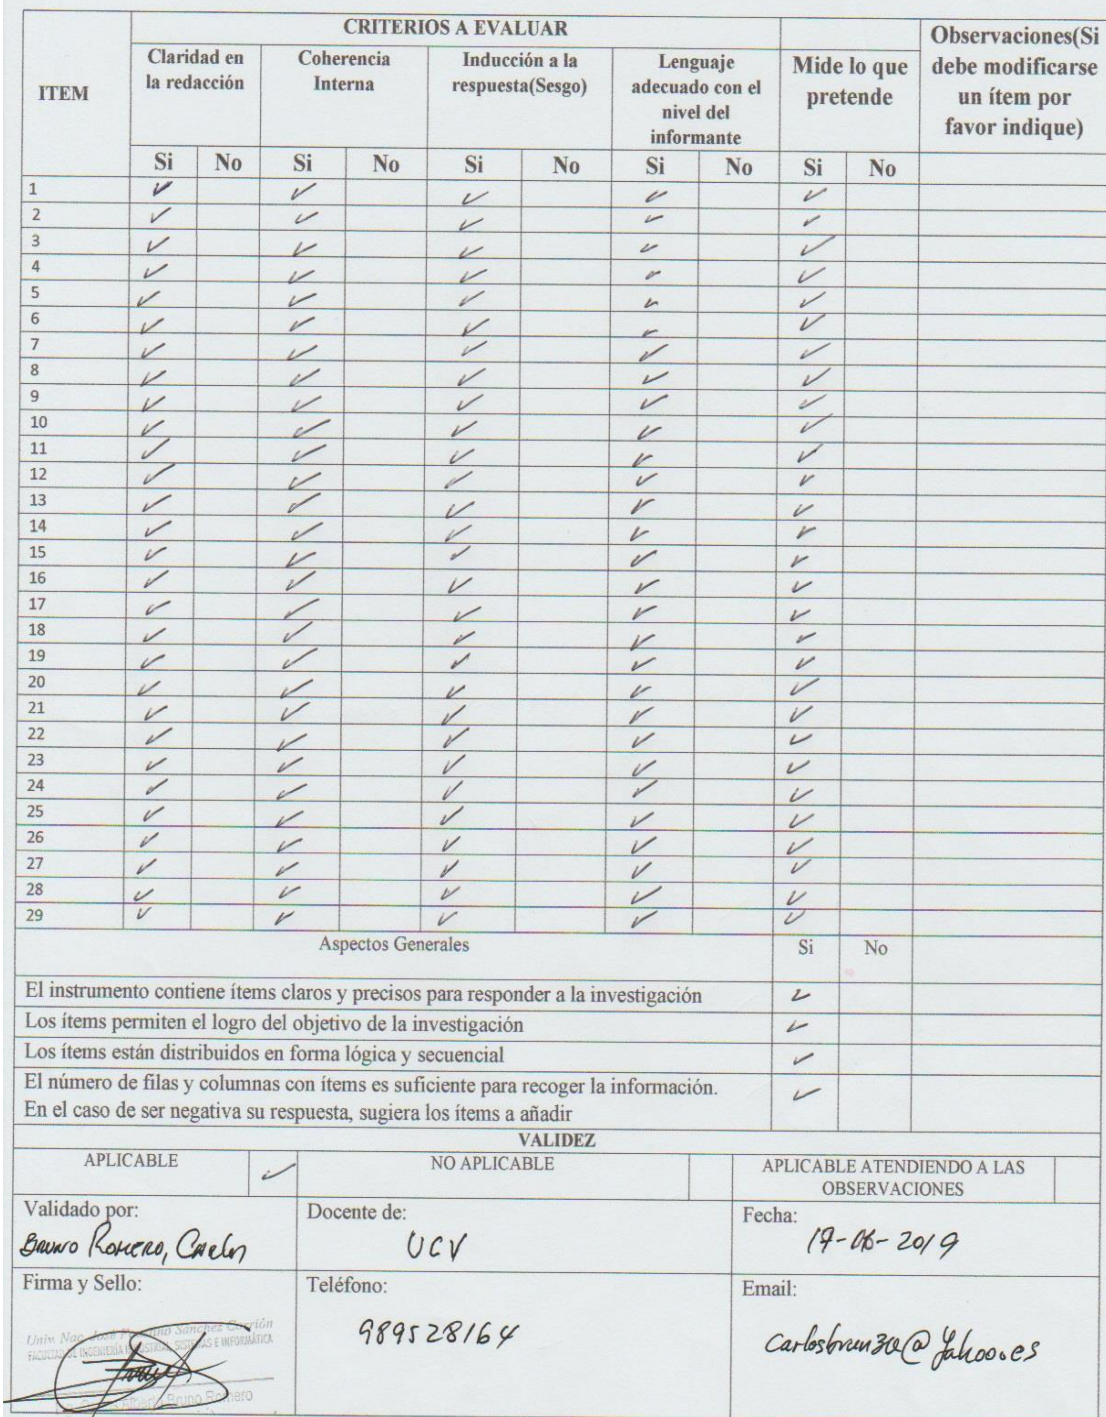 CRITERIOS A EVALUAR
ITEM
Claridad en
la redacción
Coherencia
Interna
Inducción a la
respuesta(Sesgo)
Lenguaje
adecuado con el
nivel del
informante
Mide lo que
pretende
Observaciones(Si
debe modificarse
un ítem por
favor indique)
Si No Si No Si No Si No Si No
1
2
3
4
5
6
7
8
9
10
11
12
13
14
15
16
17
18
19
20
21
22
23
24
25
26
27
28
29
Aspectos Generales Si No
El instrumento contiene ítems claros y precisos para responder a la investigación
Los ítems permiten el logro del objetivo de la investigación
Los ítems están distribuidos en forma lógica y secuencial
El número de filas y columnas con ítems es suficiente para recoger la información.
En el caso de ser negativa su respuesta, sugiera los ítems a añadir
VALIDEZ
APLICABLE
NO APLICABLE
APLICABLE ATENDIENDO A LAS
OBSERVACIONES
Validado por:
Bruno Romero, Carlos
Docente de:
UCV
Fecha:
17-06-2019
Firma y Sello:
Univ. Nac. José Sánchez Carrión
FACULTAD DE INGENIERÍA INDUSTRIAL, SISTEMAS E INFORMÁTICA
Bruno Romero
Teléfono:
989528164
Email:
@yahoo.es